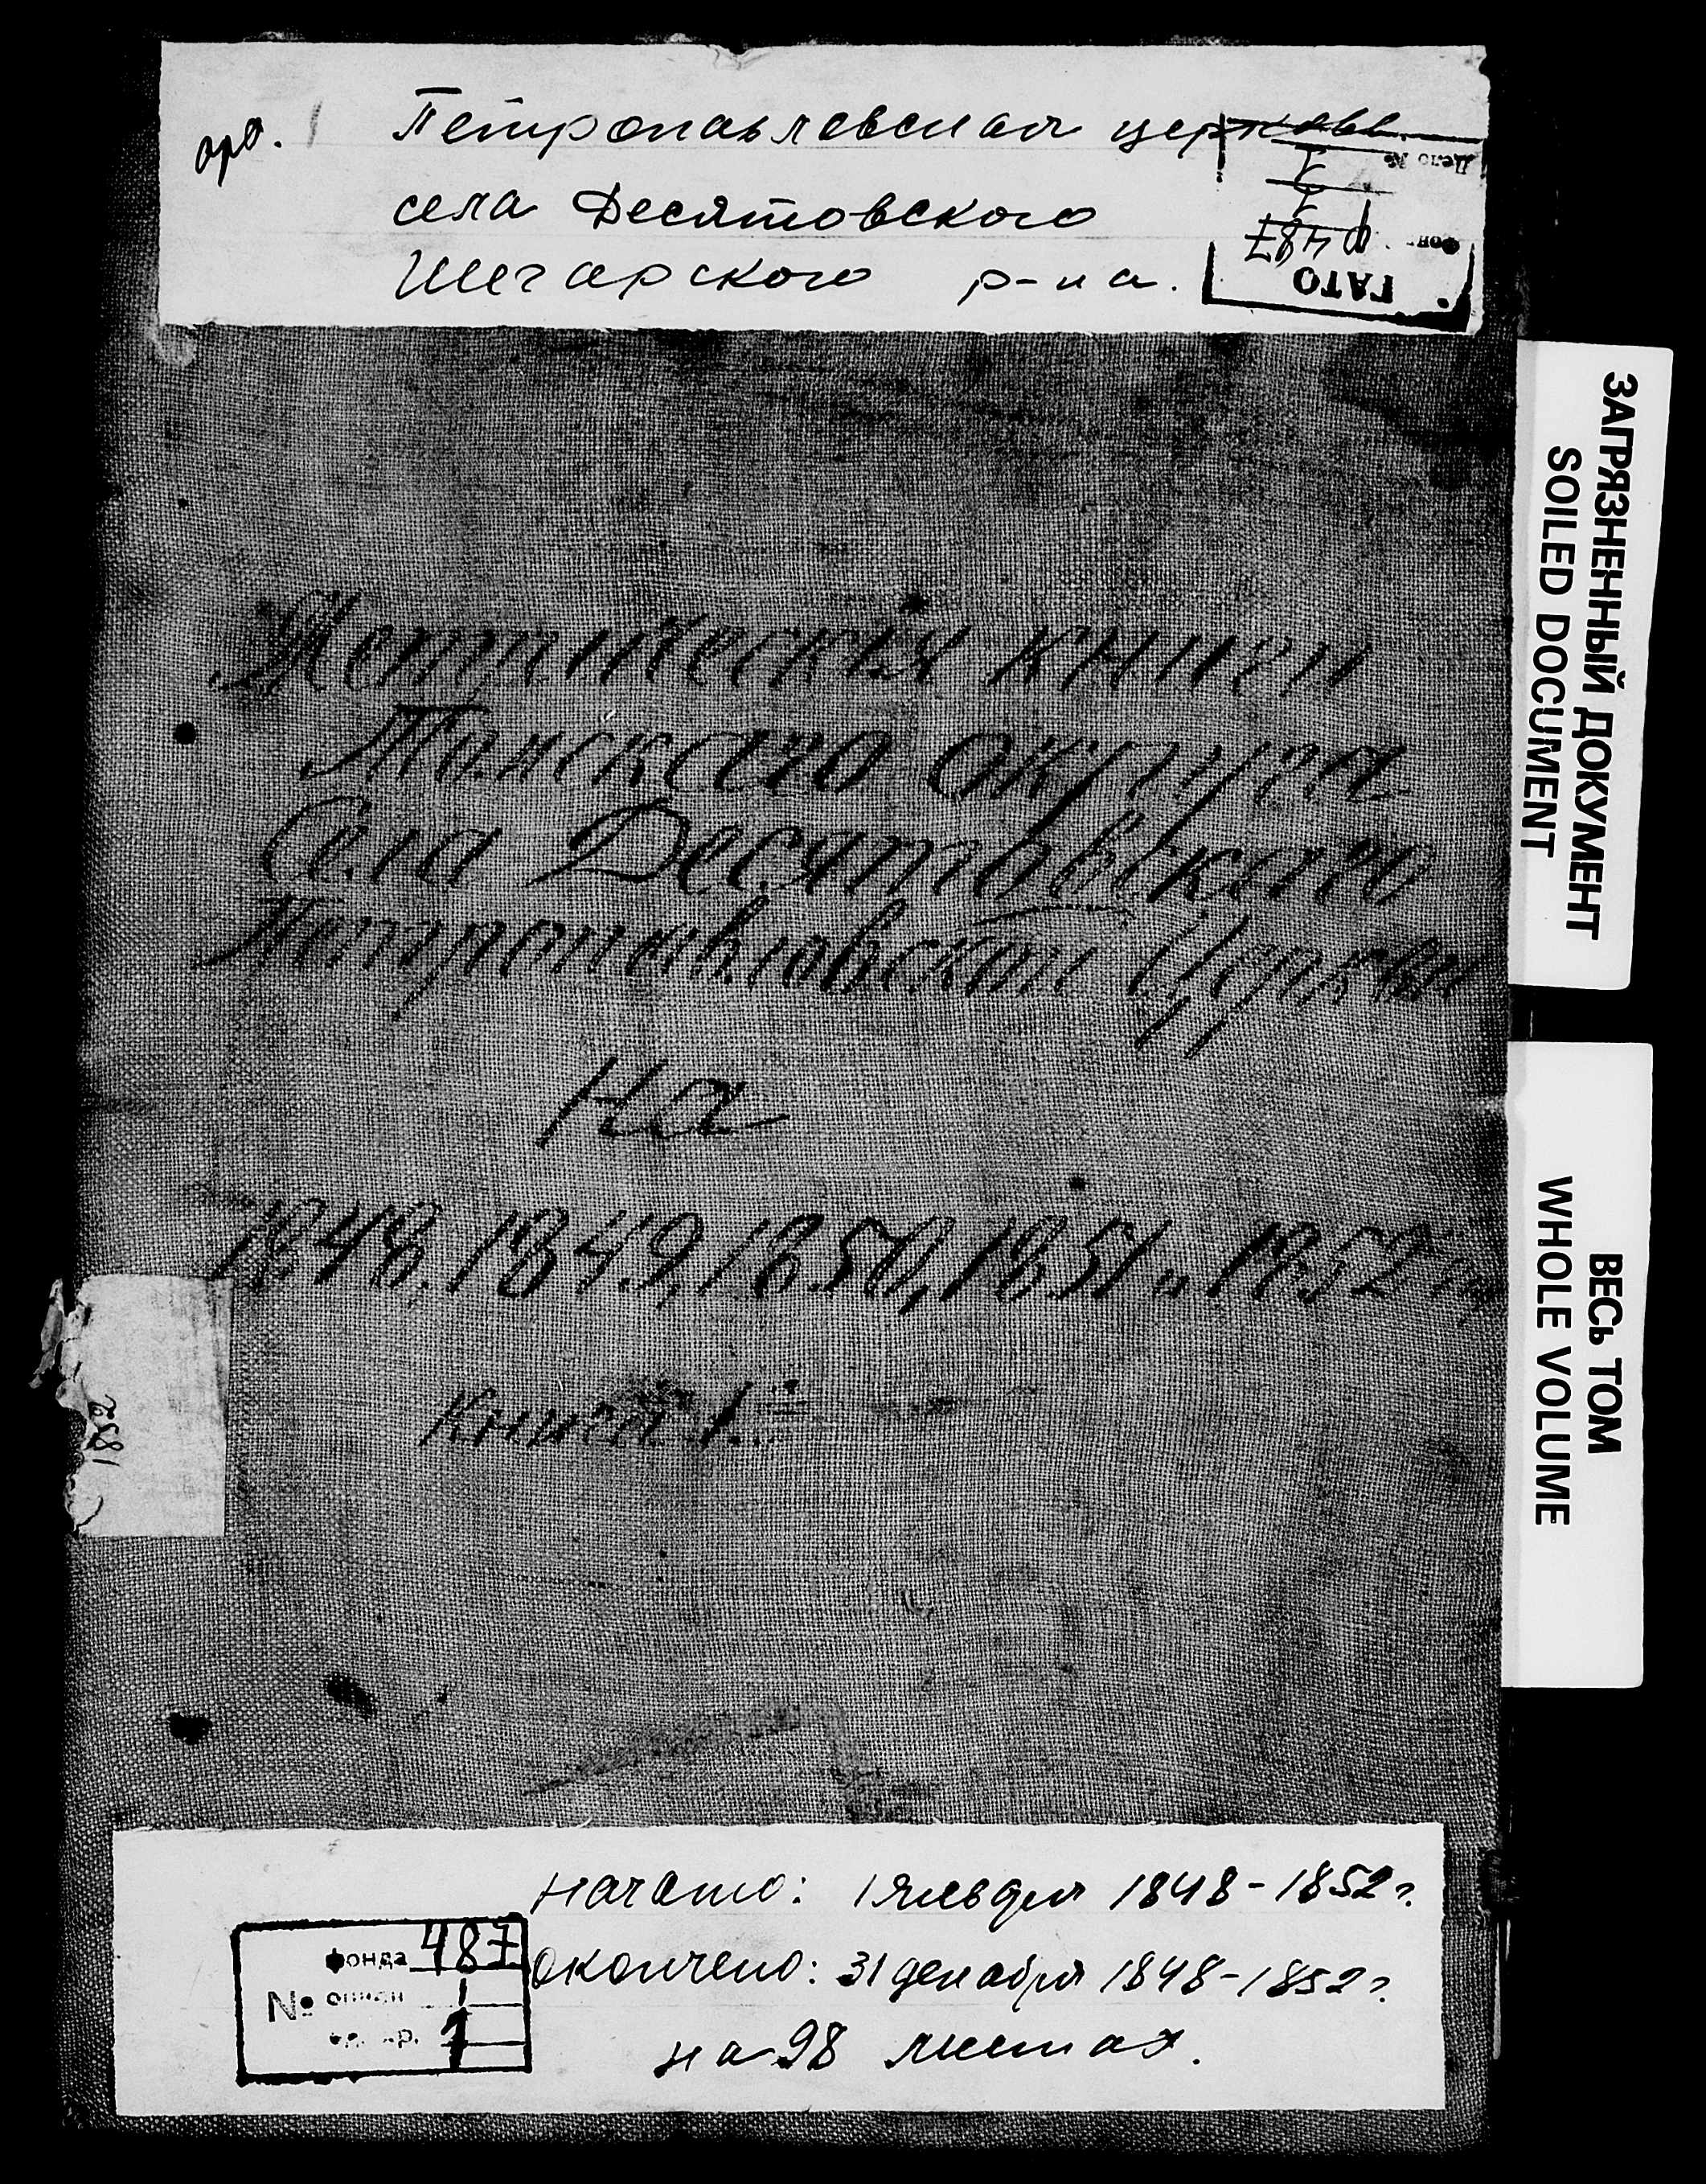 Петропавловская церковь
села Десятовского
Шегарского р-на.
Дело №
1
1
Ф 487
ГАТО
ЗАГРЯЗНЕННЫЙ ДОКУМЕНТ
SOILED DOCUMENT
Метрическія книги
Томскаго округа
Села Десятовскаго
Петропавловской Церкви
на
1848, 1849, 1850, 1851 и 1852
Книга 1.
1852
ВЕСЬ ТОМ
WHOLE VOLUME
начато: 1 января 1848-1852 г.
окончено: 31 декабря 1848-1852 г.
на 98 листах.
фонда 487
№ описи 1
ед. хр. 1